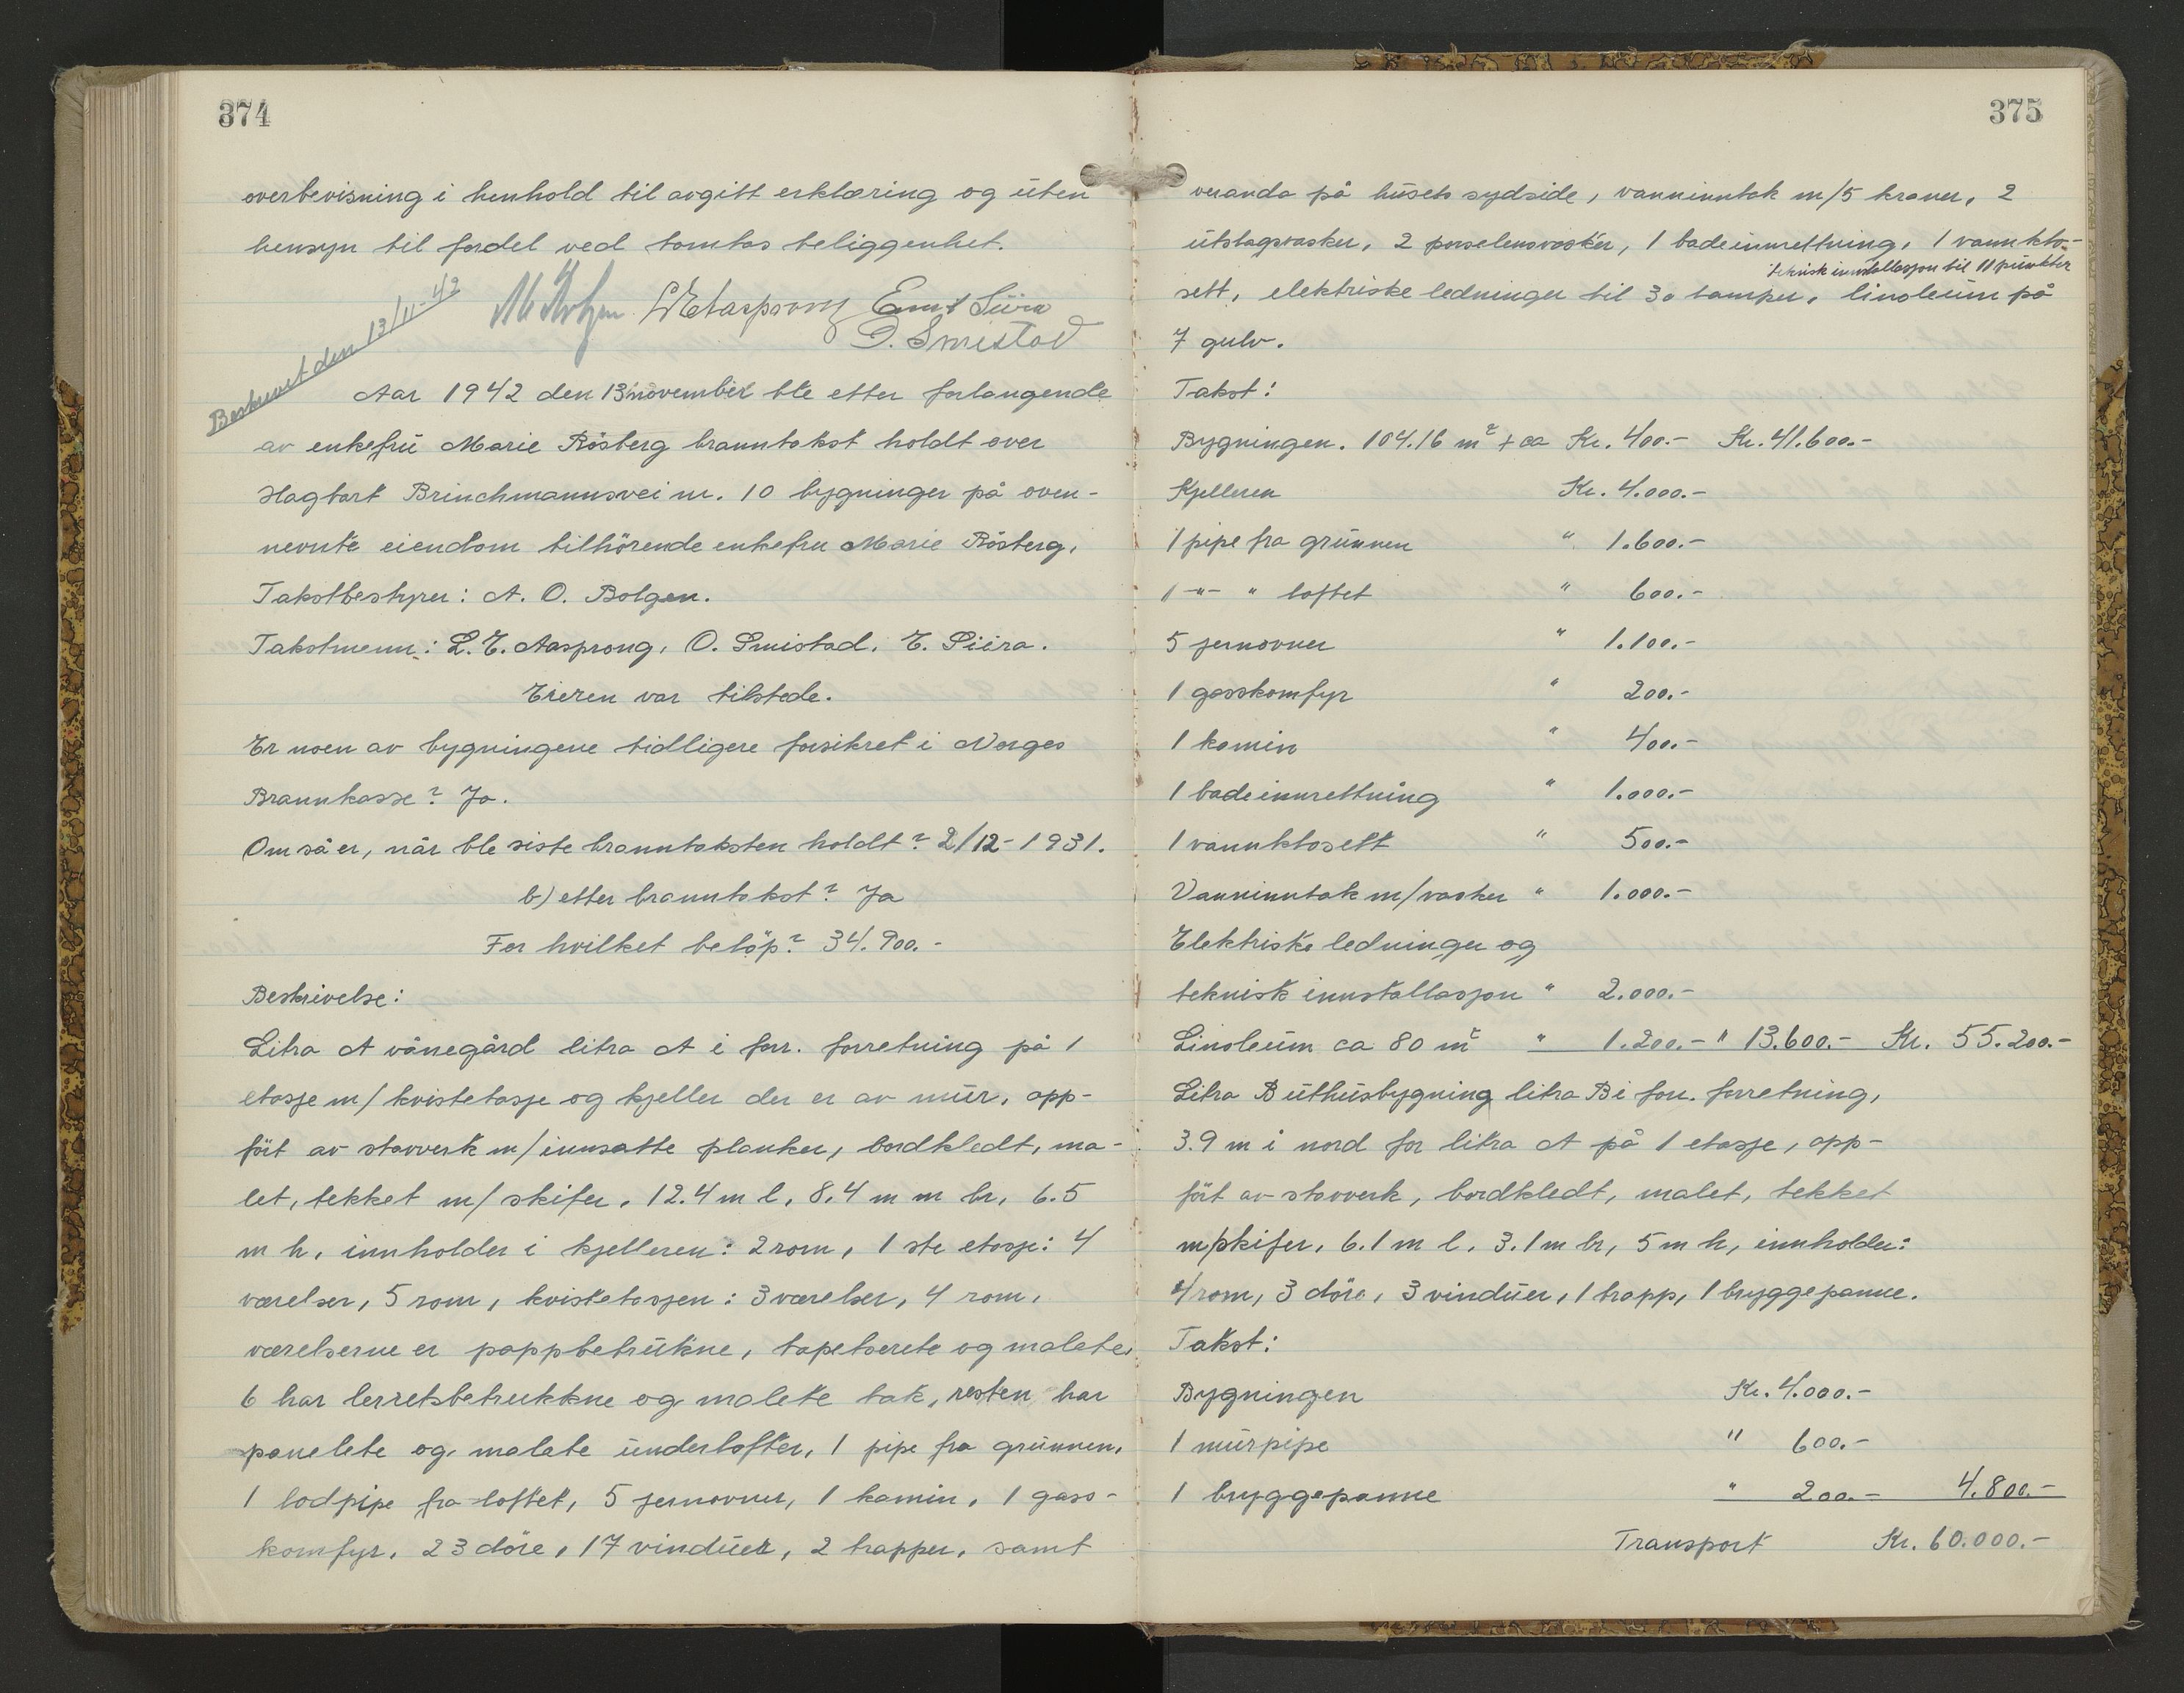 374
overbevisning i henhold til avgitt erklæring og uten
hensyn til fordel ved tomtas beliggenhet.
Beskrevet den 13/11-42
L E Aasprong Emil Siira
O. Smistad
Aar 1942 den 13 november ble etter forlangende
av enkefru Marie Rösberg branntakst holdt over
Hagbart Brinchmannsvei nr. 10 bygninger på oven-
nevnte eiendom tilhörende enkefru Marie Rösberg.
Takstbestyrer: A. O. Bolgen.
Takstmenn: L. E. Aasprong, O. Smistad. E. Siira.
Eieren var tilstede.
Er noen av bygningene tidligere forsikret i Norges
Brannkasse? Ja.
Om så er, når ble siste branntaksten holdt? 2/12-1931.
b) etter branntakst? Ja
For hvilket belöp? 34.900.-
Beskrivelse:
Litra A vånegård litra A i forr. forretning på 1
etasje m/ kvistetasje og kjeller der er av mur, opp-
fört av stavverk m/ innsatte planker, bordkledt, ma-
let, tekket m/ skifer. 12.4 m l. 8.4 m m br, 6.5
m h, innholder i kjelleren: 2 rom, 1 ste etasje: 4
værelser, 5 rom, kvistetasjen: 3 værelser, 4 rom,
værelserne er pappbetrukne, tapetserete og malete,
6 har lerretsbetrukkne og malete tak, resten har
panelete og malete underlofter, 1 pipe fra grunnen,
1 lodpipe fra loftet, 5 jernovner, 1 kamin, 1 gass-
komfyr. 23 döre, 17 vinduer, 2 trapper, samt
375
veranda på husets sydside, vanninntak m/5 kraner, 2
utslagsvasker, 2 porselensvasker, 1 badeinnrettning, 1 vannklo-
teknisk innstallasjon til 11 punkter
sett, elektriske ledninger til 30 lamper, linoleum på
7 gulv.
Takst:
Bygningen. 104.16 m² + ca Kr. 400.- Kr. 41.600.-
Kjelleren Kr. 4.000.-
1 pipe fra grunnen " 1.600.-
1 -"- " loftet " 600.-
5 jernovner " 1.100.-
1 gasskomfyr " 200.-
1 kamin " 400.-
1 badeinnrettning " 1.000.-
1 vannklosett " 500.-
Vanninntak m/vasker " 1.000.-
Elektriske ledninger og
teknisk innstallasjon " 2.000.-
Linoleum ca 80 m² " 1.200.- " 13.600.- Kr. 55.200.-
Litra B uthusbygning litra B i forr. forretning,
3.9 m i nord for litra A på 1 etasje, opp-
fört av stavverk, bordkledt, malet, tekket
m/skifer, 6.1 m l. 3.1 m br, 5 m h, innholder:
4 rom, 3 döre, 3 vinduer, 1 trapp, 1 bryggepanne.
Takst:
Bygningen Kr. 4.000.-
1 murpipe " 600.-
1 bryggepanne " 200.- 4.800.-
Transport Kr. 60.000.-